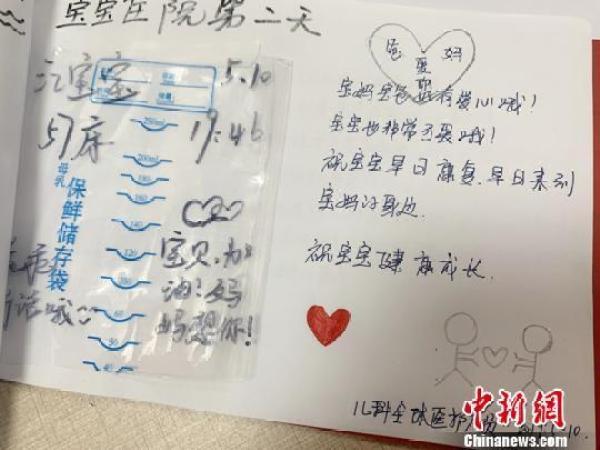 宝宝住院第二天
江宝宝 5.10
月床 19:46
200ml
180
160
140
120
100
80
60
母乳保鲜储存袋
宝贝,加
油!妈
妈想你!
听话哦
爸 爱 妈
宝妈宝爸
有爱心哦!
宝宝也非常勇敢哦!
祝宝宝早日康复,早日来到
宝妈的身边.
祝宝宝健康成长.
儿科全体医护
5.10.
中新网
Chinanews.com